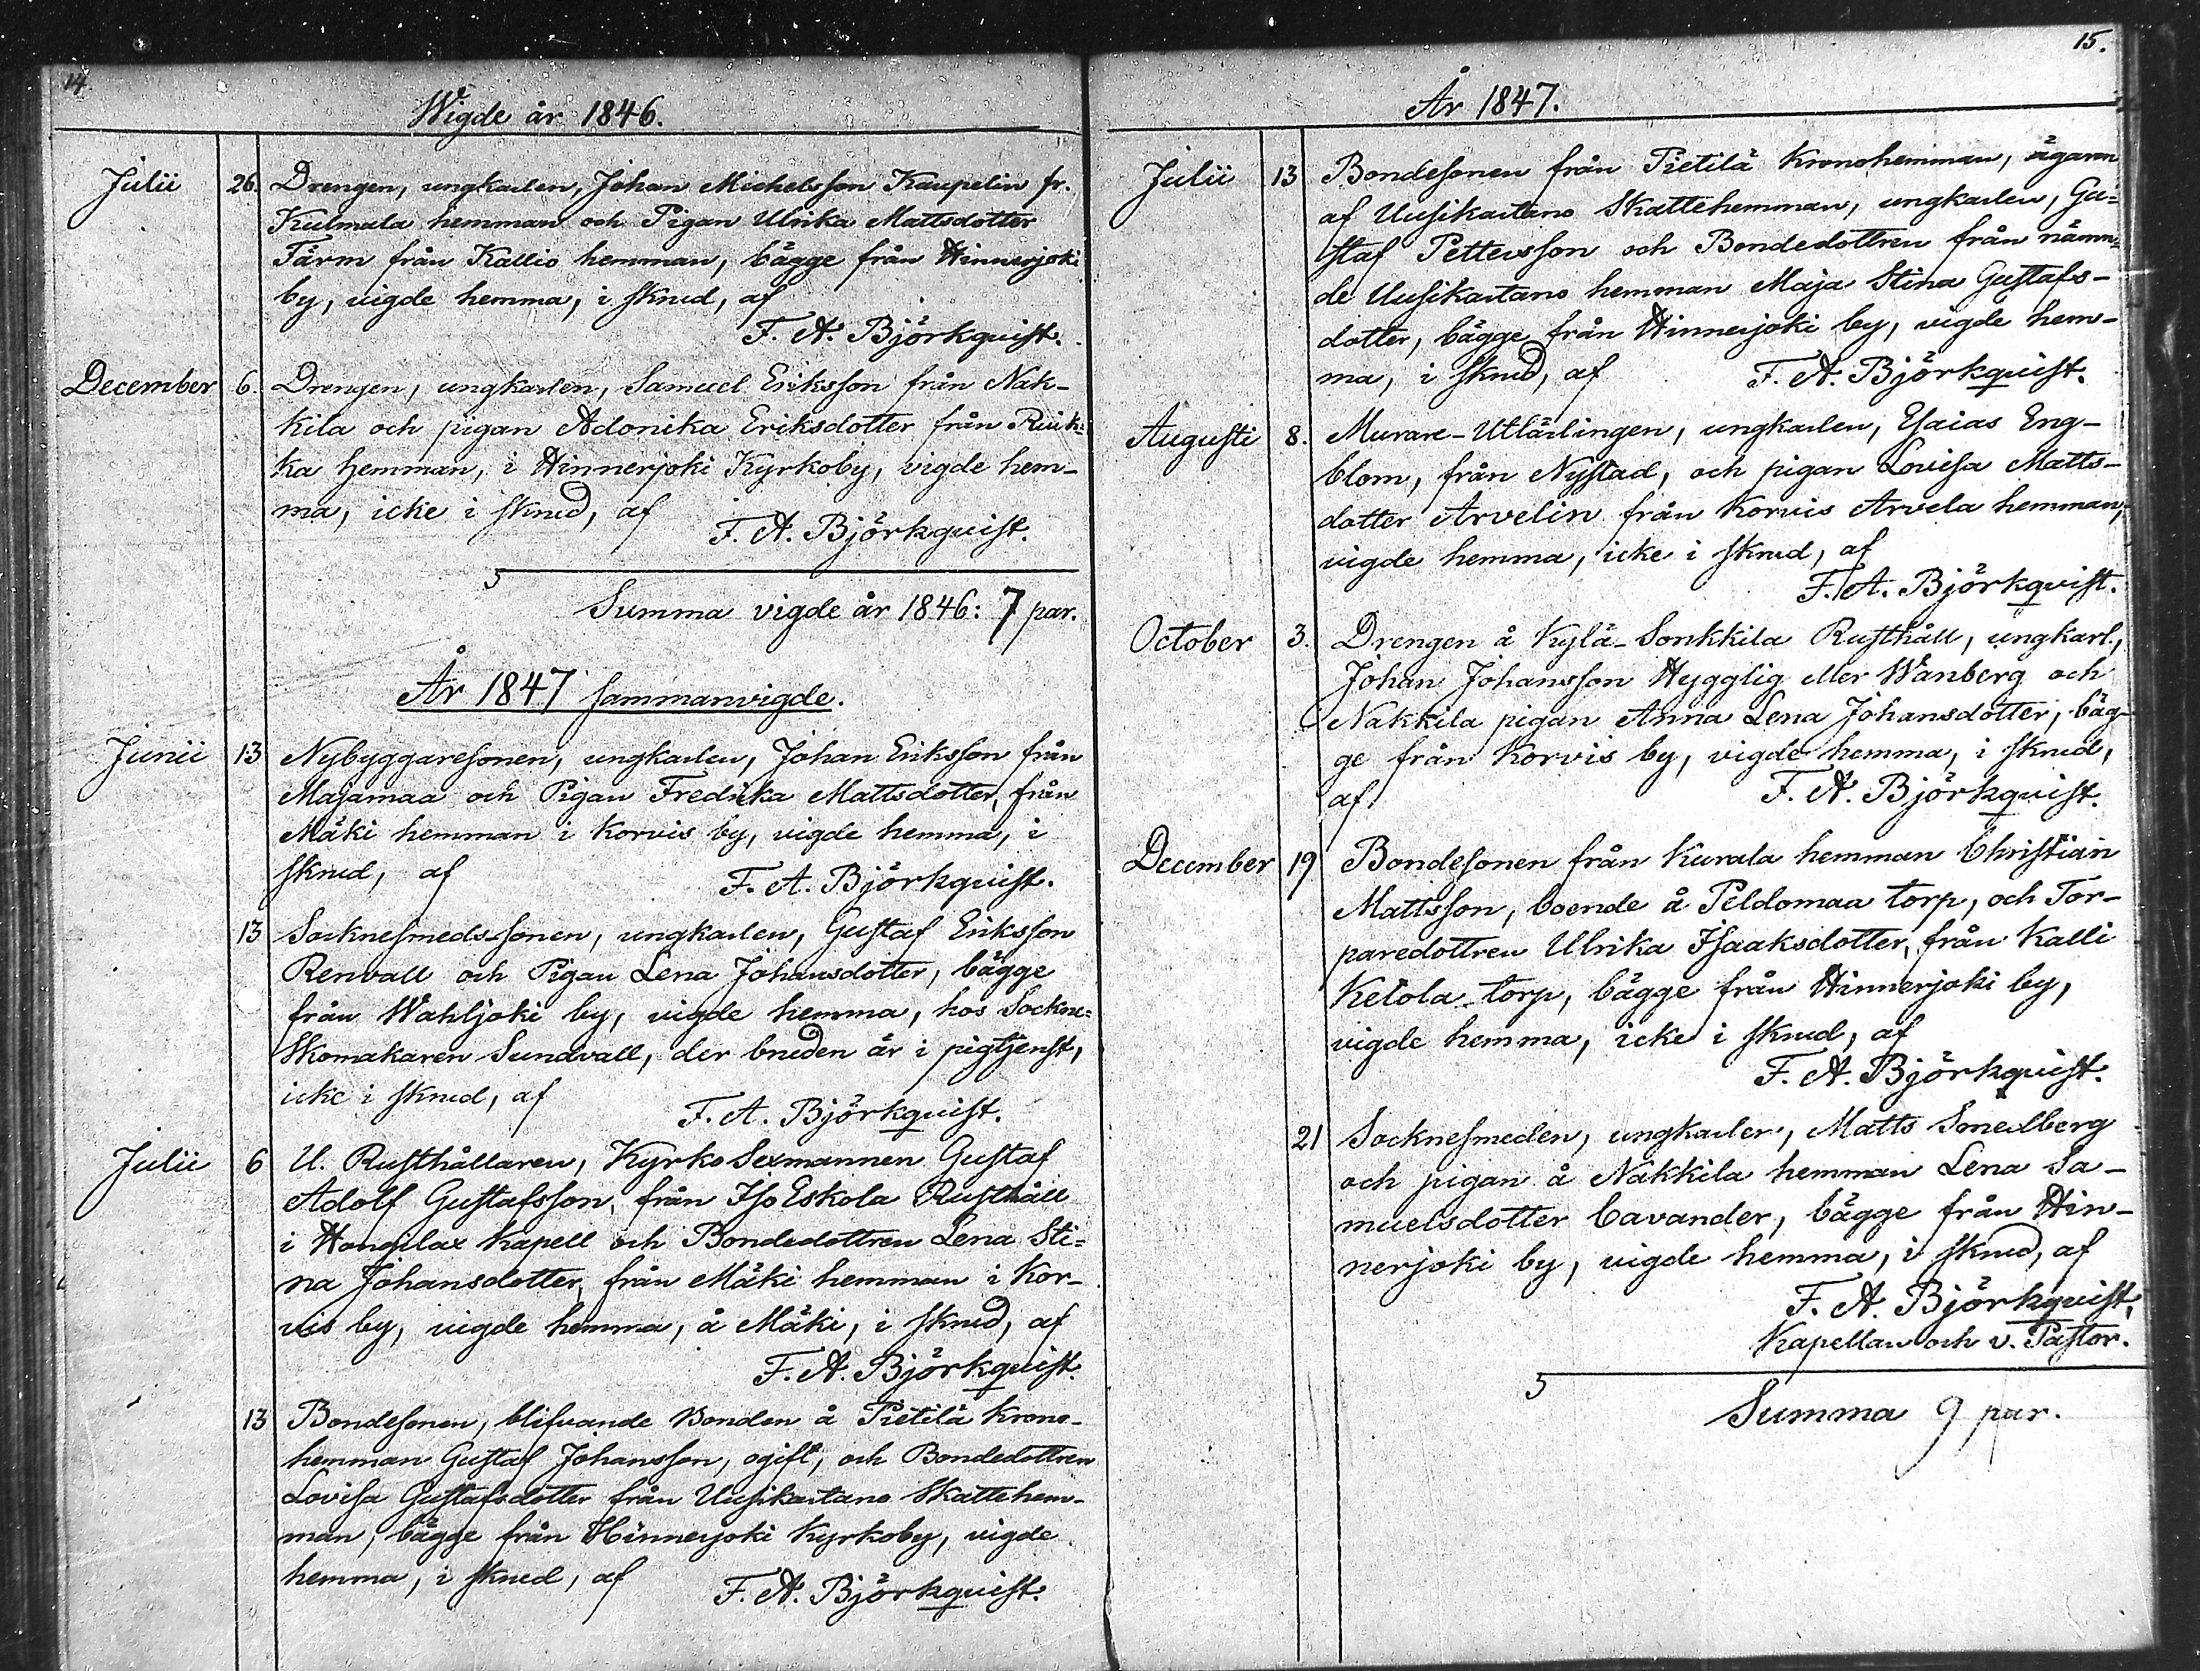 14.
Wigde år 1846.
Julii 26. Drengen, ungkarlen, Johan Michelsson Kaupelin fr.
Kulmala hemman och Pigan Ulrika Mattsdotter
Färm från Kallio hemman, bägge från Hinnerjoki
by, vigde hemma, i skrud, af
F. A. Björkqvist.
December 6. Drengen, ungkarlen, Samuel Eriksson från Nak-
kila och pigan Adonika Eriksdotter från Ruik-
ka hemman, i Hinnerjoki Kyrkoby, vigde hem-
ma, icke i skrud, af
F. A. Björkqvist.
Summa vigde år 1846: 7 par.
År 1847 sammanvigde.
Junii 13 Nybyggaresonen, ungkarlen, Johan Eriksson från
Majamaa och Pigan Fredrika Mattsdotter, från
Mäki hemman i Korvis by, vigde hemma, i
skrud, af
F. A. Björkqvist.
13 Socknesmeds-sonen, ungkarlen, Gustaf Eriksson
Renvall och Pigan Lena Johansdotter, bägge
från Wahljoki by, vigde hemma, hos Sockne=
Skomakaren Sundvall, der bruden är i pigtjenst,
icke i skrud, af
F. A. Björkqvist.
Julii 6 U. Rusthållaren, Kyrko Sexmannen Gustaf
Adolf Gustafsson, från Iso Eskola Rusthåll
i Hongilax Kapell och Bondedottren Lena Sti=
na Johansdotter, från Mäki hemman i Kor-
vis by, vigde hemma, å Mäki, i skrud, af
F. A. Björkqvist.
13 Bondesonen, blifvande Bonden å Pietilä Krono-
hemman Gustaf Johansson, ogift, och Bondedottren
Lovisa Gustafsdotter från Uusikartano Skattehem-
man, bägge från Hinnerjoki Kyrkoby, vigde
hemma, i skrud, af
F. A. Björkqvist.
15.
År 1847.
Julii 13 Bondesonen från Pietilä Kronohemman, ägaren
af Uusikartano Skattehemman, ungkarlen, Gu=
staf Pettersson och Bondedottren från nämn=
de Uusikartano hemman Maja Stina Gustafs-
dotter, bägge från Hinnerjoki by, vigde hem-
ma, i skrud, af F. A. Björkqvist.
Augusti 8. Murare-Utlärlingen, ungkarlen, Esaias Eng-
blom, från Nystad, och pigan Lovisa Matts-
dotter Arvelin från Korvis Arvela hemman,
vigde hemma, icke i skrud, af
F. A. Björkqvist.
October 3. Drengen å Kylä-Sonkkila Rusthåll, ungkarl.,
Johan Johansson Hygglig eller Wanberg och
Nakkila pigan Anna Lena Johansdotter, bäg-
ge från Korvis by, vigde hemma, i skrud,
af F. A. Björkqvist.
December 19 Bondesonen från Kurala hemman Christian
Mattsson, boende å Peldomaa torp, och Tor-
paredottren Ulrika Isaaksdotter, från Kalli
Ketola torp, bägge från Hinnerjoki by,
vigde hemma, icke i skrud, af
F. A. Björkqvist.
21 Socknesmeden, ungkarlen, Matts Smedberg
och pigan å Nakkila hemman Lena Sa-
muelsdotter Cavander, bägge från Hin-
nerjoki by, vigde hemma, i skrud, af
F. A. Björkqvist,
Kapellan och v. Pastor.
Summa 9 par.